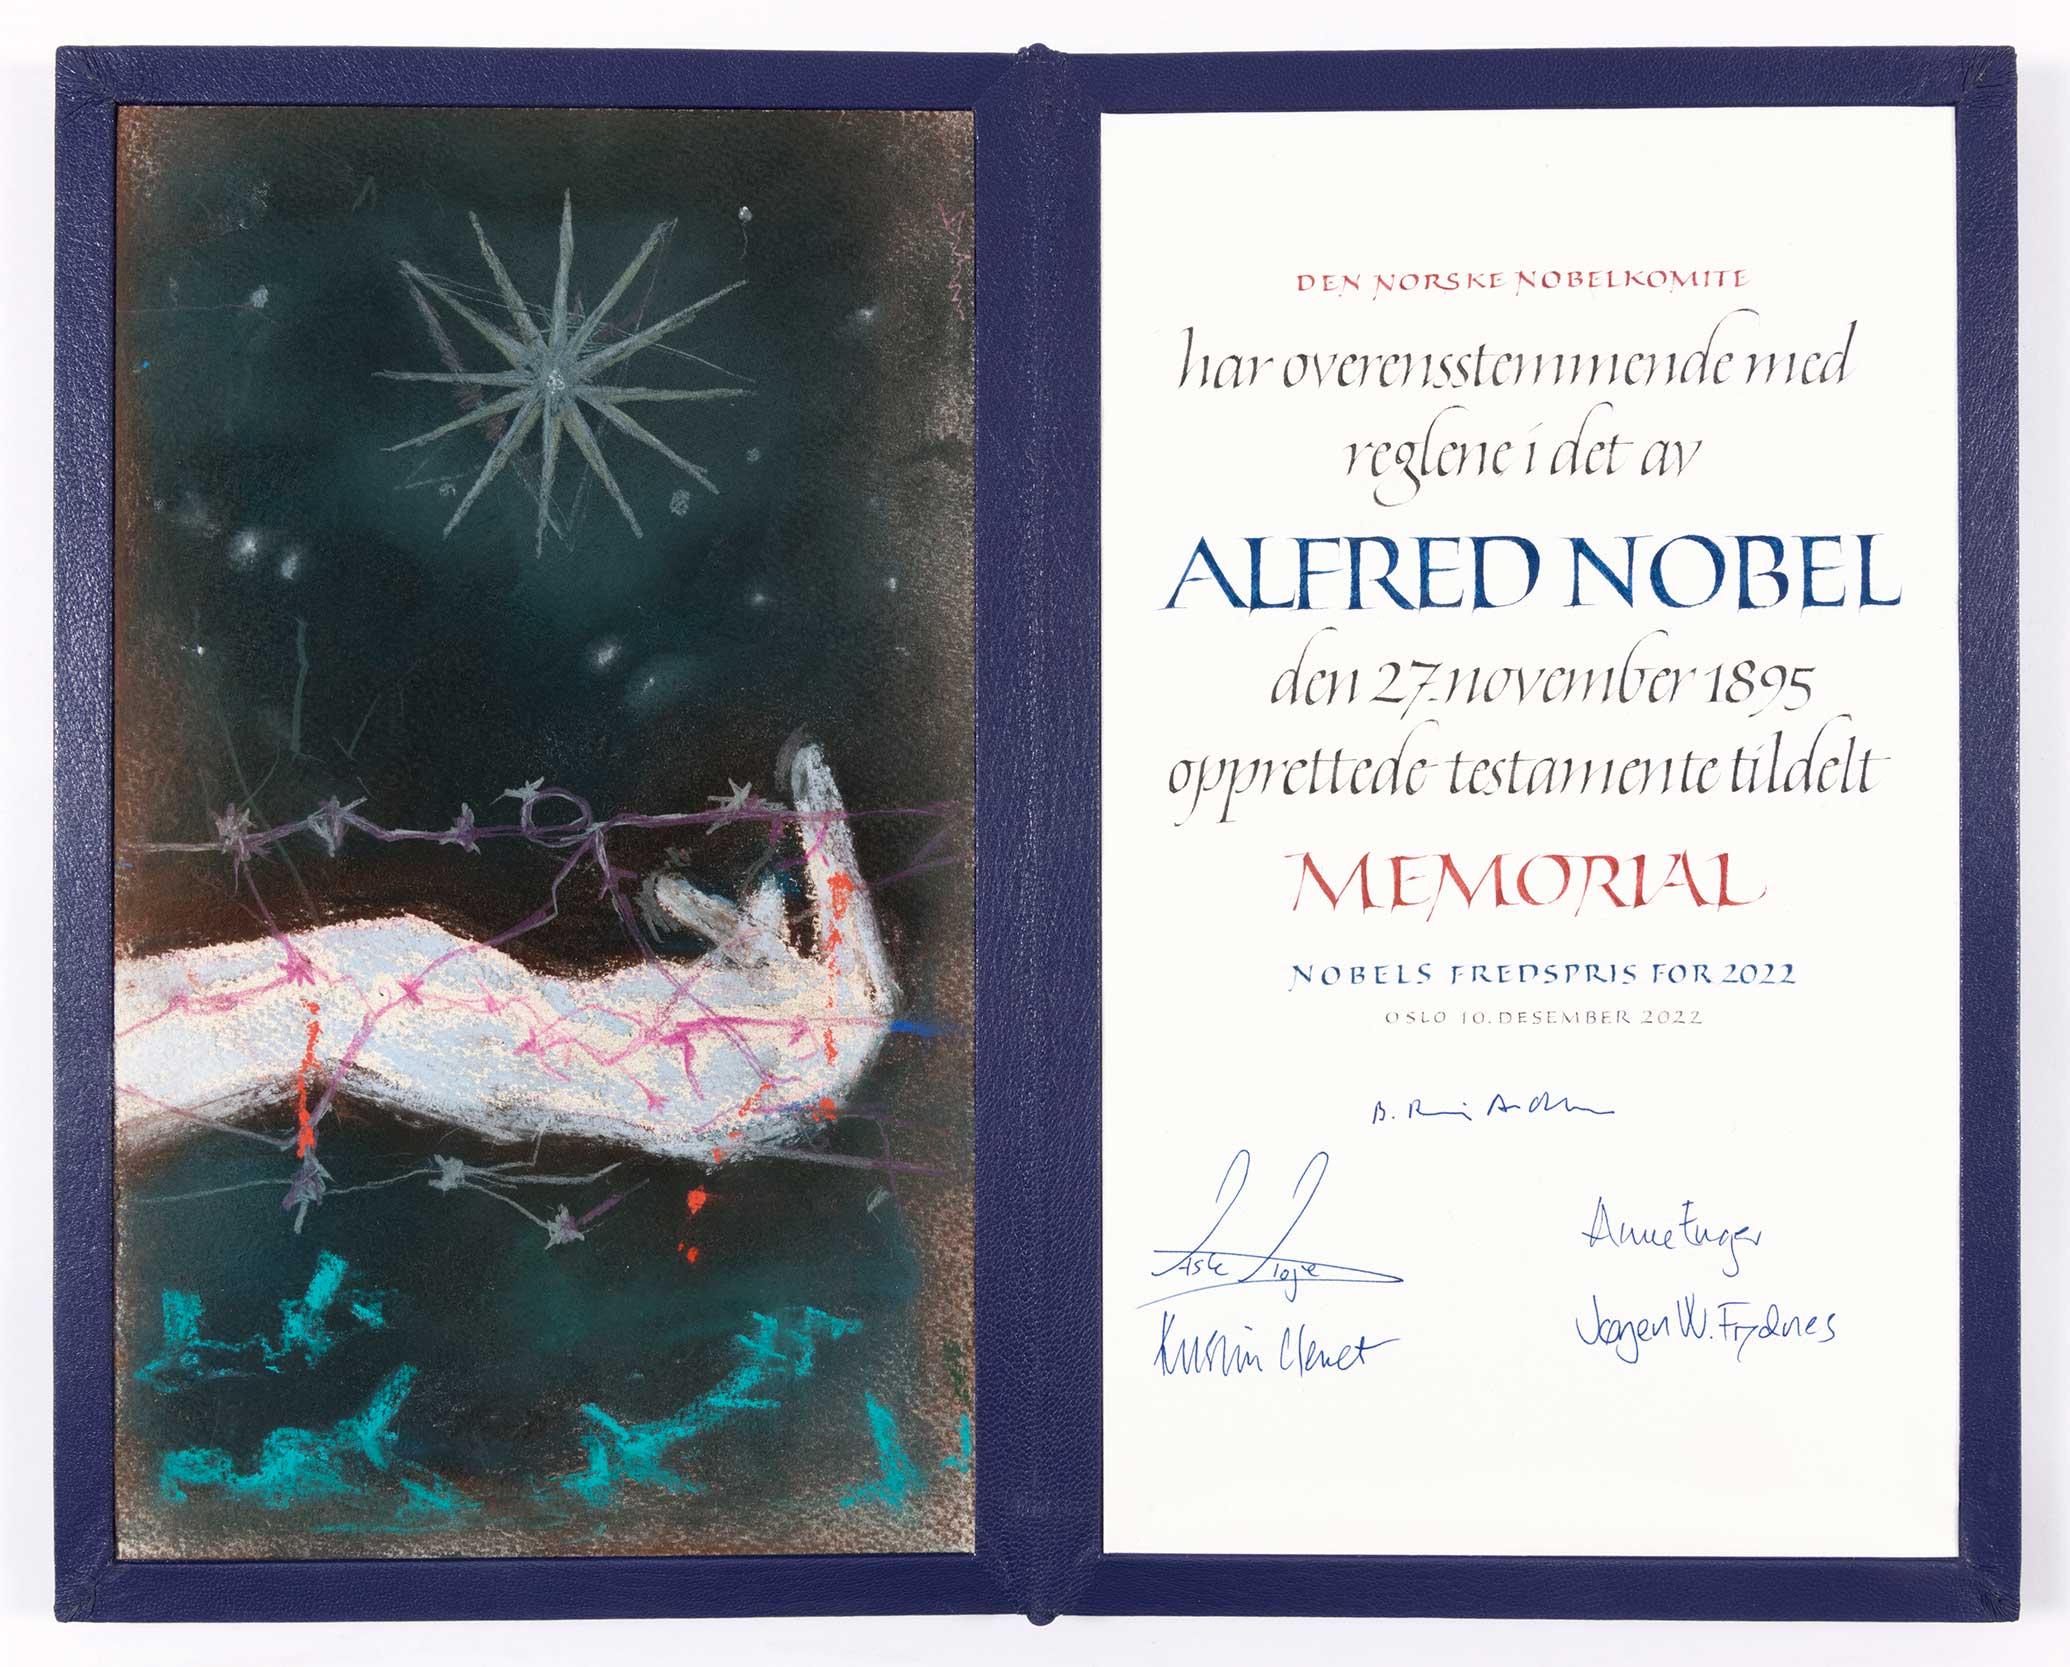 DEN NORSKE NOBELKOMITE
har overensstemmende med
reglene i det av
ALFRED NOBEL
den 27. november 1895
opprettede testamente tildelt
MEMORIAL
NOBELS FREDSPRIS FOR 2022
OSLO 10. DESEMBER 2022
Asle Toje
Anne Enger
Kristin Clemet
Jørgen W. Frydnes